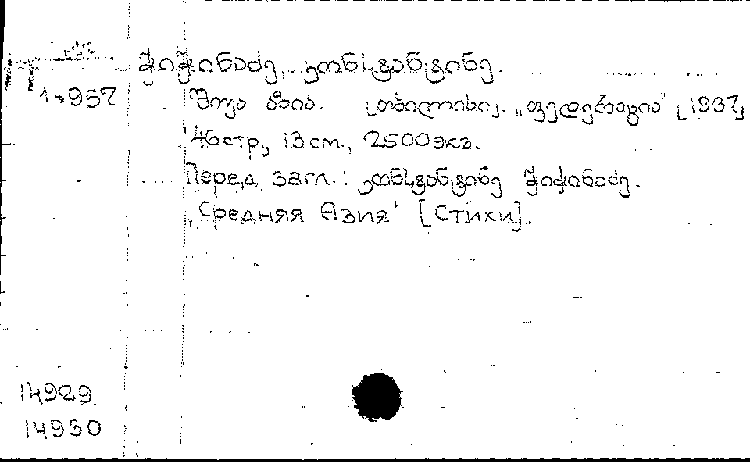 ჭიჭინაძე, კონსტანტინე.
1-937 შუა აზია. [თბილისი]. „ფედერაცია" [1937]
46стр, 13см., 2500экз.
Перед загл.: კონსტანტინე ჭიჭინაძე.
„Средняя Азия" [Стихи].
14929
14930